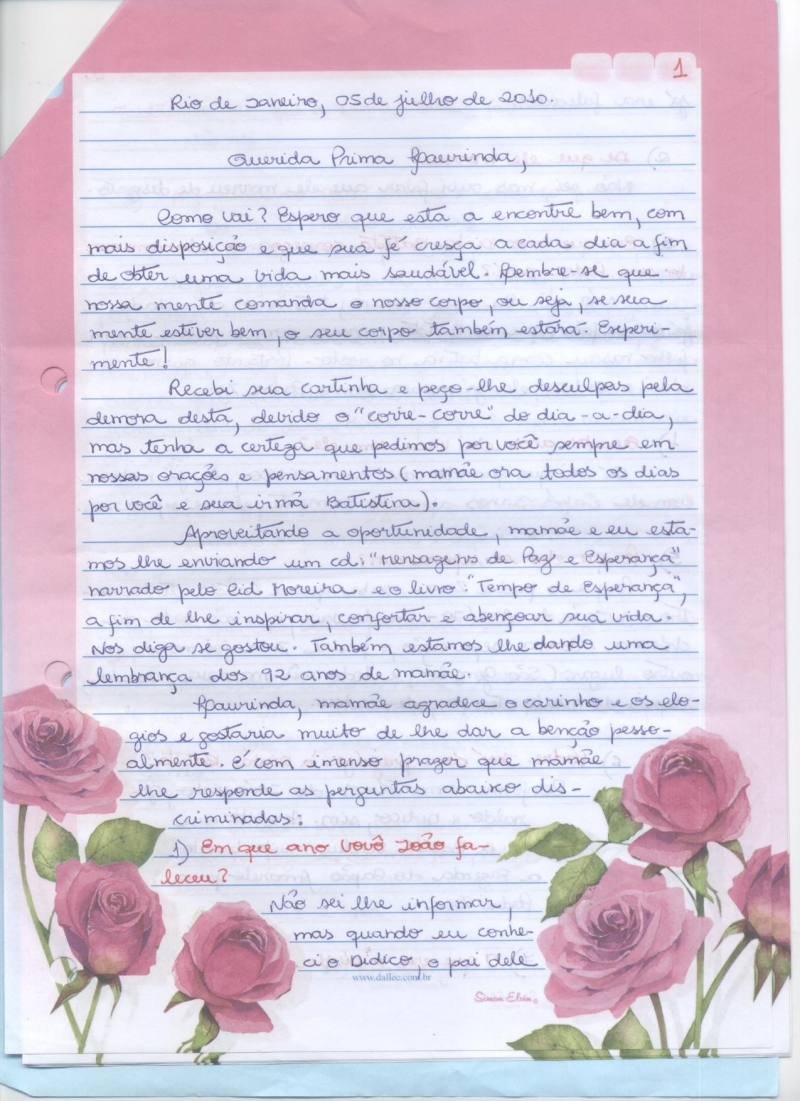 1
Rio de Janeiro, 05 de julho de 2010.
Querida Prima Laurinda,
Como vai? Espero que esta a encontre bem, com
mais disposição e que sua fé cresça a cada dia a fim
de obter uma vida mais saudável. Lembre-se que
nossa mente comanda o nosso corpo, ou seja, se sua
mente estiver bem, o seu corpo também estará. Experi-
mente!
Recebi sua cartinha e peço-lhe desculpas pela
demora desta, devido o "corre-corre" do dia-a-dia,
mas tenha a certeza que pedimos por você sempre em
nossas orações e pensamentos (mamãe ora todos os dias
por você e sua irmã Batistina).
Aproveitando a oportunidade, mamãe e eu esta-
mos lhe enviando um cd: "Mensagens de Paz e Esperança"
narrado pelo Cid Moreira e o livro: "Tempo de Esperança",
a fim de lhe inspirar, confortar e abençoar sua vida.
Nos diga se gostou. Também estamos lhe dando uma
lembrança dos 92 anos de mamãe.
Laurinda, mamãe agradece o carinho e os elo-
gios e gostaria muito de lhe dar a benção pesso-
almente. É com imenso prazer que mamãe
lhe responde as perguntas abaixo dis-
criminadas:
1) Em que ano vovô João fa-
leceu?
Não sei lhe informar,
mas quando eu conhe-
ci o Didico, o pai dele
www.dallec.com.br